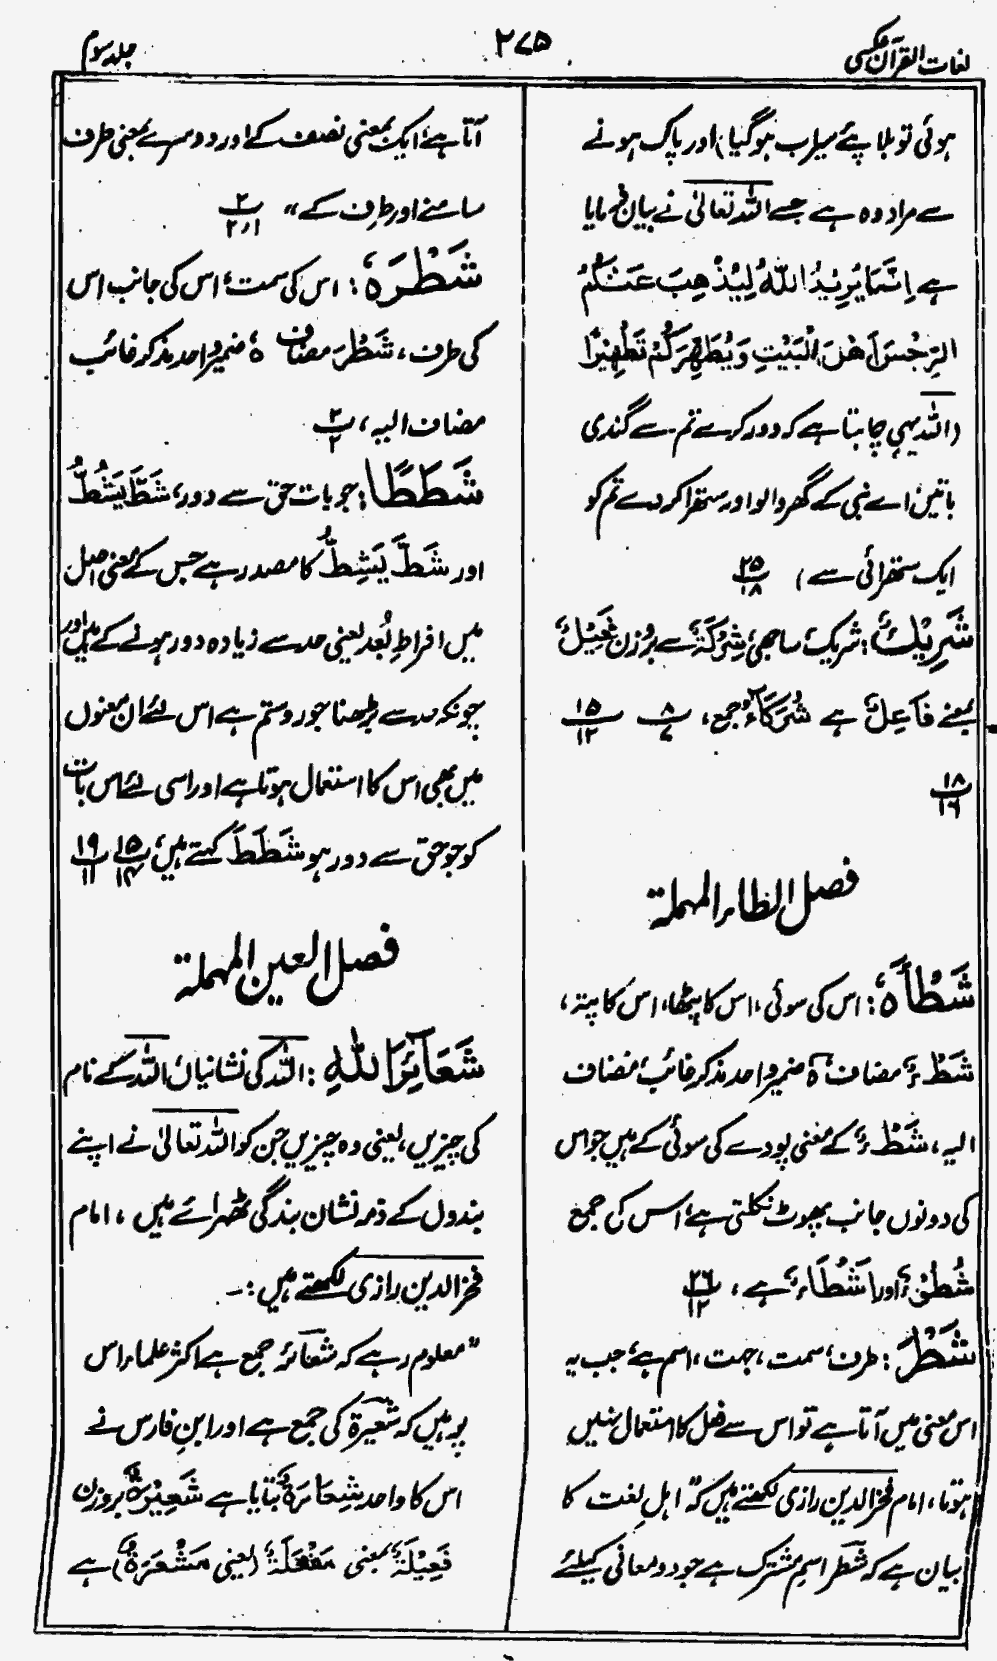 لغات القرآن عکسی
۲۷۵
جلد سوم
ہوئی تو بلا پئے سیراب ہو گیا) اور پاک ہونے
سے مراد وہ ہے جسے اللہ تعالیٰ نے بیان فرمایا
ہے اِنَّمَا یُرِیْدُ اللّٰہُ لِیُذْھِبَ عَنْکُمُ
الرِّجْسَ اَھْلَ الْبَیْتِ وَیُطَھِّرَکُمْ تَطْھِیْرًا
(اللہ یہی چاہتا ہے کہ دور کرے تم سے گندی
باتیں اے نبی کے گھر والو اور ستھرا کر دے تم کو
ایک ستھرائی سے) ۲۵/۱۸
شَرِیْکٌ: شریک، ساجھی، شِرْکَۃٌ سے بروزن فَعِیْلٌ
بمعنے فَاعِلٌ ہے شُرَکَاءُ جمع، ۸/۷ ۱۵/۱۲
۱۸/۱۶
فصل الطاء المہملۃ
شَطْأَہٗ: اس کی سوئی، اس کا پٹھا، اس کا پتہ،
شَطْءٌ مضاف ہٗ ضمیر واحد مذکر غائب، مضاف
الیہ، شَطْءٌ کے معنی پودے کی سوئی کے ہیں جو اس
کی دونوں جانب پھوٹ نکلتی ہے، اس کی جمع
شُطُئٌ اور اَشْطَاءٌ ہے، ۲۶/۱۲
شَطْرَ: طرف، سمت، جہت، اسم ہے، جب یہ
اس معنی میں آتا ہے تو اس سے فعل کا استعمال نہیں
ہوتا، امام فخر الدین رازی لکھتے ہیں کہ "اہلِ لغت کا
بیان ہے کہ شطر اسمِ مشترک ہے جو دو معانی کیلئے
آتا ہے، ایک بمعنی نصف کے اور دوسرے بمعنی طرف
سامنے اور طرف کے" ۲/۱،۲
شَطْرَہٗ: اس کی سمت، اس کی جانب اس
کی طرف، شَطْرَ مضاف ہٗ ضمیر واحد مذکر غائب
مضاف الیہ، ۲/۲
شَطَطًا: جو بات حق سے دور، شَطَّ یَشُطُّ
اور شَطَّ یَشِطُّ کا مصدر ہے جس کے معنی اصل
میں افراطِ بُعد یعنی حد سے زیادہ دور ہونے کے ہیں اور
چونکہ حد سے بڑھنا جور و ستم ہے اس لئے ان معنوں
میں بھی اس کا استعمال ہوتا ہے اور اسی لئے اس بات
کو جو حق سے دور ہو شَطَطَ کہتے ہیں، ۱۵/۱۴ ۱۹/۱۱
فصل العین المہملۃ
شَعَآئِرَ اللّٰہِ: اللہ کی نشانیاں، اللہ کے نام
کی چیزیں، یعنی وہ چیزیں جن کو اللہ تعالیٰ نے اپنے
بندوں کے ذمہ نشان بندگی ٹھہرائے ہیں، امام
فخر الدین رازی لکھتے ہیں:۔
"معلوم رہے کہ شعائر جمع ہے اکثر علماء اس
پر ہیں کہ شعیرۃ کی جمع ہے اور ابن فارس نے
اس کا واحد شِعَارَۃٌ بتایا ہے شَعِیْرَۃٌ بروزن
فَعِیْلَۃٌ بمعنی مَفْعَلَۃٌ (یعنی مَشْعَرَۃٌ) ہے